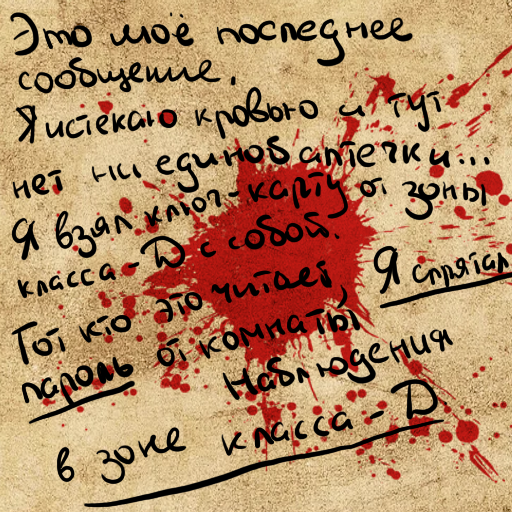 Это моё последнее
сообщение.
Я истекаю кровью и тут
нет ни единой аптечки...
Я взял ключ-карту от зоны
класса-D с собой.
Тот кто это читает, Я спрятал
пароль от комнаты
Наблюдения
в зоне класса-D